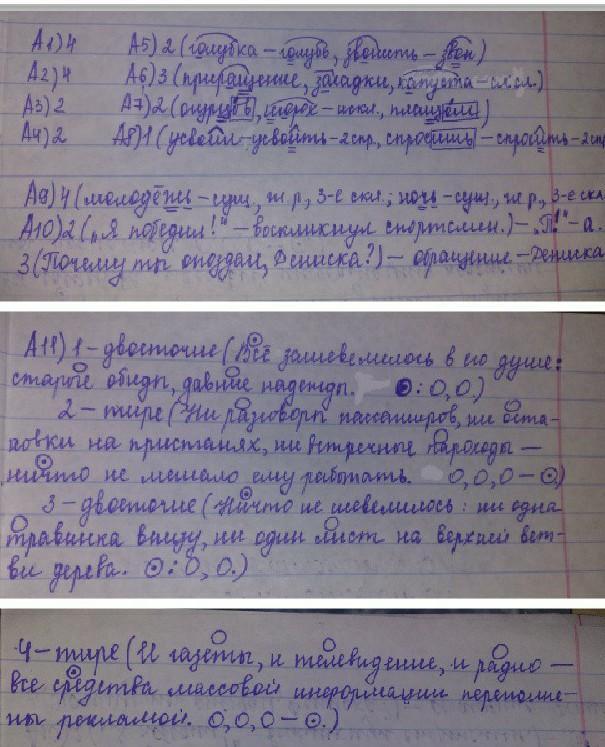 А1) 4 А5) 2 (голубка – голубь, звонить – звон)
А2) 4 А6) 3 (приращение, загадки, капуста – искл.)
А3) 2 А7) 2 (огурцы, – искл., плащом)
А4) 2 А8) 1 (усвоил – усвоить – 2 спр., спросишь – спросить – 2 спр
А9) 4 (молодёжь – сущ., ж.р., 3-е скл.; ночь – сущ., ж.р., 3-е скл
А10) 2 („Я победил!" – воскликнул спортсмен.) – „П!" – а.
3 (Почему ты опоздал, Дениска?) – обращение – Дениска
А11) 1 – двоеточие (Всё зашевелилось в его душе:
старые обиды, давние надежды. ⊙: О, О)
2 – тире (Ни разговоры пассажиров, ни оста-
новки на пристанях, ни встречные пароходы –
ничто не мешало ему работать. О, О, О – ⊙)
3 – двоеточие (Ничто не шевелилось: ни одна
травинка внизу, ни один лист на верхней вет-
ви дерева. ⊙: О, О.)
4 – тире (И газеты, и телевидение, и радио –
все средства массовой информации переполне-
ны рекламой. О, О, О – ⊙.)